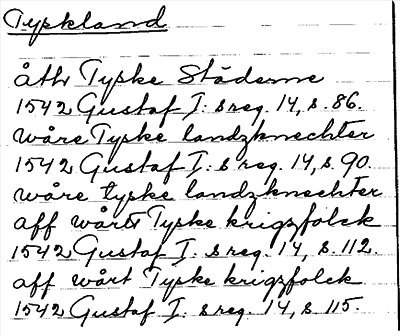 Tyskland
åthr Tyske Städerne
1542 Gustaf I: s reg. 14, s. 86.
wåre Tyske landzknechter
1542 Gustaf I: s reg. 14, s. 90.
wåre tyske landzknechter
aff wårtt Tyske krigzfolck
1542 Gustaf I: s reg. 14, s. 112.
aff wårt Tyske krigzfolck
1542 Gustaf I: s reg. 14, s. 115.